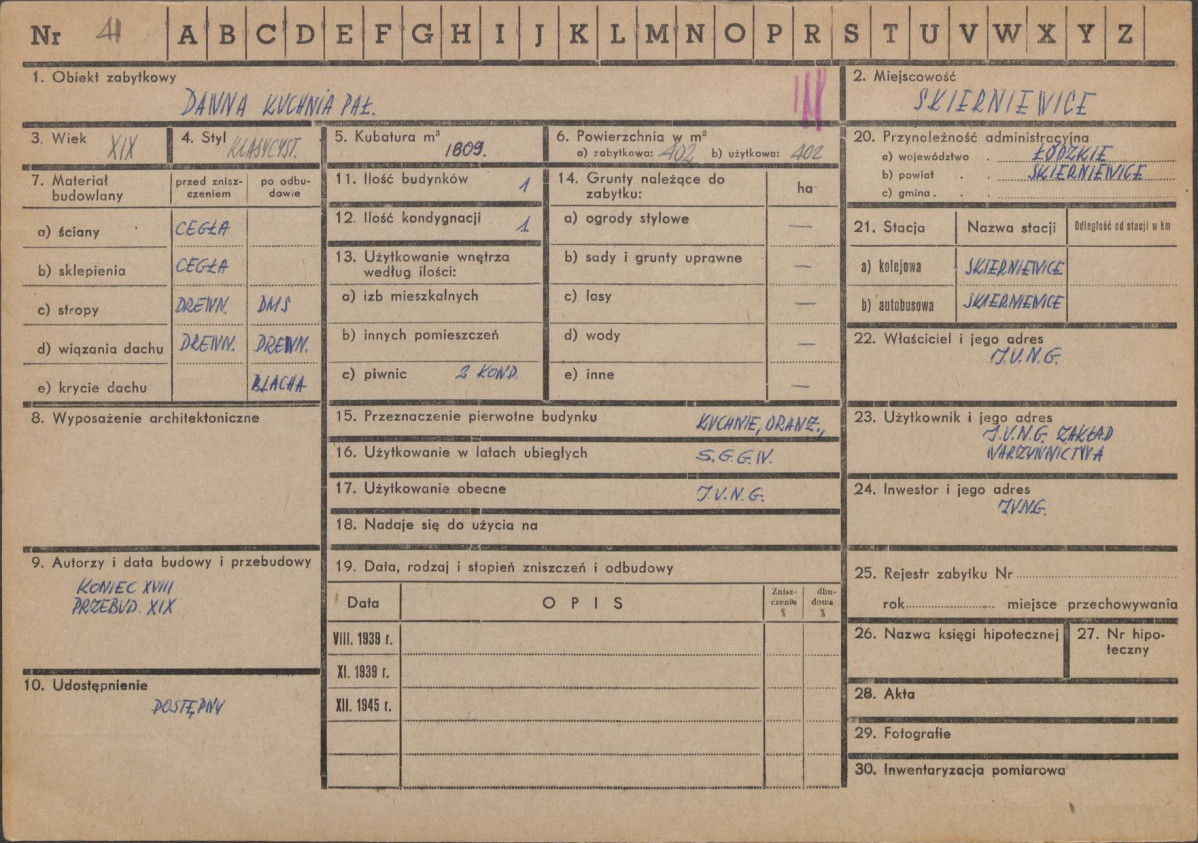 Nr 41 A B C D E F G H I J K L M N O P R S T U V W X Y Z
1. Obiekt zabytkowy
DAWNA KUCHNIA PAŁ.
2. Miejscowość
SKIERNIEWICE
3. Wiek XIX
4. Styl KLASYCYST.
5. Kubatura m³
1809.
6. Powierzchnia w m²
a) zabytkowa: 402 b) użytkowa: 402
7. Materiał budowlany
przed zniszczeniem
po odbudowie
a) ściany CEGŁA
b) sklepienia CEGŁA
c) stropy DREWN. DMS
d) wiązania dachu DREWN. DREWN.
e) krycie dachu BLACHA
8. Wyposażenie architektoniczne
9. Autorzy i data budowy i przebudowy
KONIEC XVIII
PRZEBUD. XIX
10. Udostępnienie
DOSTĘPNY
11. Ilość budynków 1
12. Ilość kondygnacji 1
13. Użytkowanie wnętrza
według ilości:
a) izb mieszkalnych
b) innych pomieszczeń
c) piwnic 2 KOND.
14. Grunty należące do
zabytku:
ha
a) ogrody stylowe —
b) sady i grunty uprawne —
c) lasy —
d) wody —
e) inne —
15. Przeznaczenie pierwotne budynku KUCHNIE, ORANŻ.,
16. Użytkowanie w latach ubiegłych S.G.G.W.
17. Użytkowanie obecne J.U.N.G.
18. Nadaje się do użycia na
19. Data, rodzaj i stopień zniszczeń i odbudowy
Data OPIS Zniszczenia % dbudowa %
VIII. 1939 r.
XI. 1939 r.
XII. 1945 r.
20. Przynależność administracyjna
a) województwo . ŁÓDZKIE
b) powiat . . SKIERNIEWICE
c) gmina . .
21. Stacja Nazwa stacji Odległość od stacji w km
a) kolejowa SKIERNIEWICE
b) autobusowa SKIERNIEWICE
22. Właściciel i jego adres
J.U.N.G.
23. Użytkownik i jego adres
J.U.N.G. ZAKŁAD
WARZYWNICTWA
24. Inwestor i jego adres
JUNG.
25. Rejestr zabytku Nr
rok miejsce przechowywania
26. Nazwa księgi hipotecznej
27. Nr hipoteczny
28. Akta
29. Fotografie
30. Inwentaryzacja pomiarowa